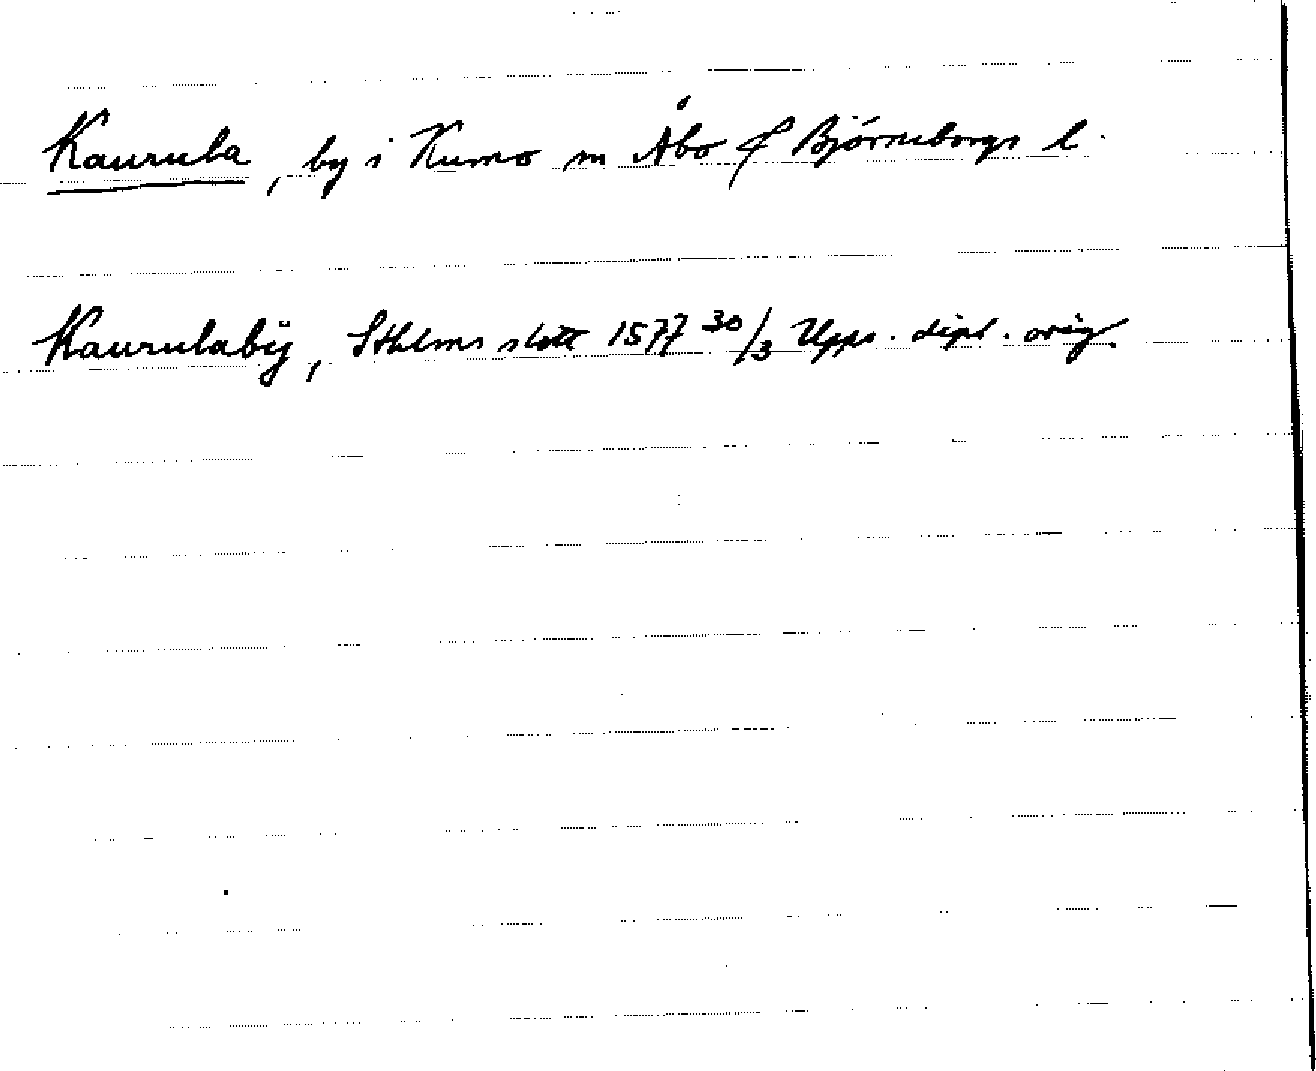 Kaurula, by i Kumo sn Åbo & Björneborgs l.
Kaurulabÿ, Sthlms slott 1577 30/3 Upps. dipl. orig.